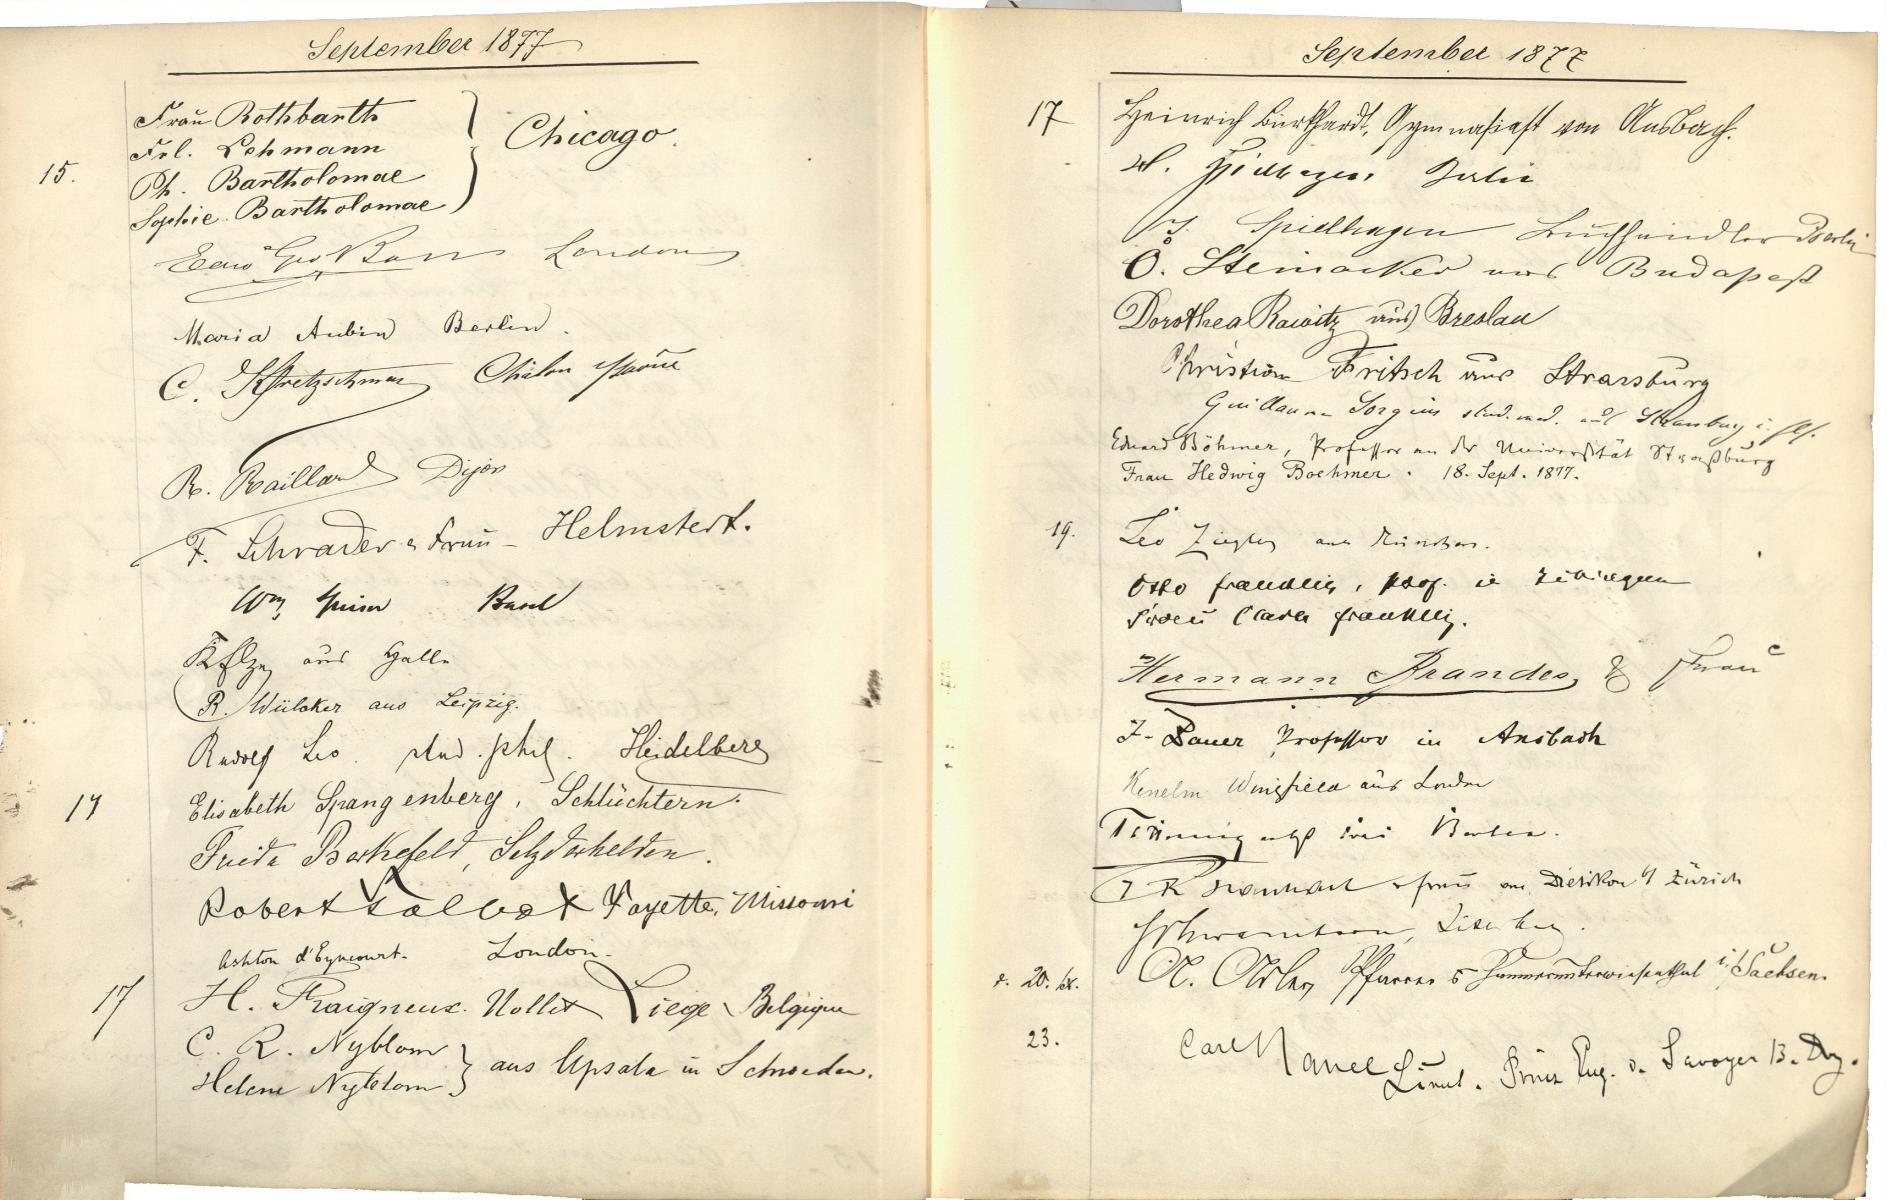 September 1877
Frau Rothbarth
Frl. Lehmann
Chicago.
15.
Ph. Bartholomae
Sophie Bartholomae
London
Maria Aubin Berlin.
C. Kretzschmar Châlon
R. Raillard Dijon
F. Schrader & Frau – Helmstedt.
Wm Basel
aus Halle
R. Wülcker aus Leipzig.
Rudolf Leo. stud. phil. Heidelberg
17 Elisabeth Spangenberg, Schlüchtern.
Frieda Berkefeld, Salzderhelden.
Robert Talbot Fayette, Missouri
Ashton d'Eyncourt. London.
17 H. Fraigneux. Nollet Liège Belgique
C. R. Nyblom
aus Upsala in Schweden.
Helene Nyblom
September 1877
17 Heinrich Burkhardt, Gymnasiast von Ansbach.
Spielhagen, Berlin
Spielhagen Buchhändler Berlin
O. Steinacker aus Budapest
Dorothea Rawitz aus Breslau
Christian Fritsch aus Strassburg
Guillaume Sorgius stud. med. aus Strassburg i. Els.
Eduard Böhmer, Professor an der Universität Straßburg
Frau Hedwig Boehmer. 18. Sept. 1877.
19. Leo Ziegler aus München.
Otto Franklin, prof. in Tübingen
Frau Clara Franklin.
Hermann Brandes & Frau
J. Bauer Professor in Ansbach
Kenelm Wingfield aus London
Berlin.
& Frau aus Dietikon b/ Zürich
d. 20. Pfarrer Hammerunterwiesenthal i/ Sachsen.
23. Carl
Lieut. Prinz Eug. v. Savoyen 13. Drg.